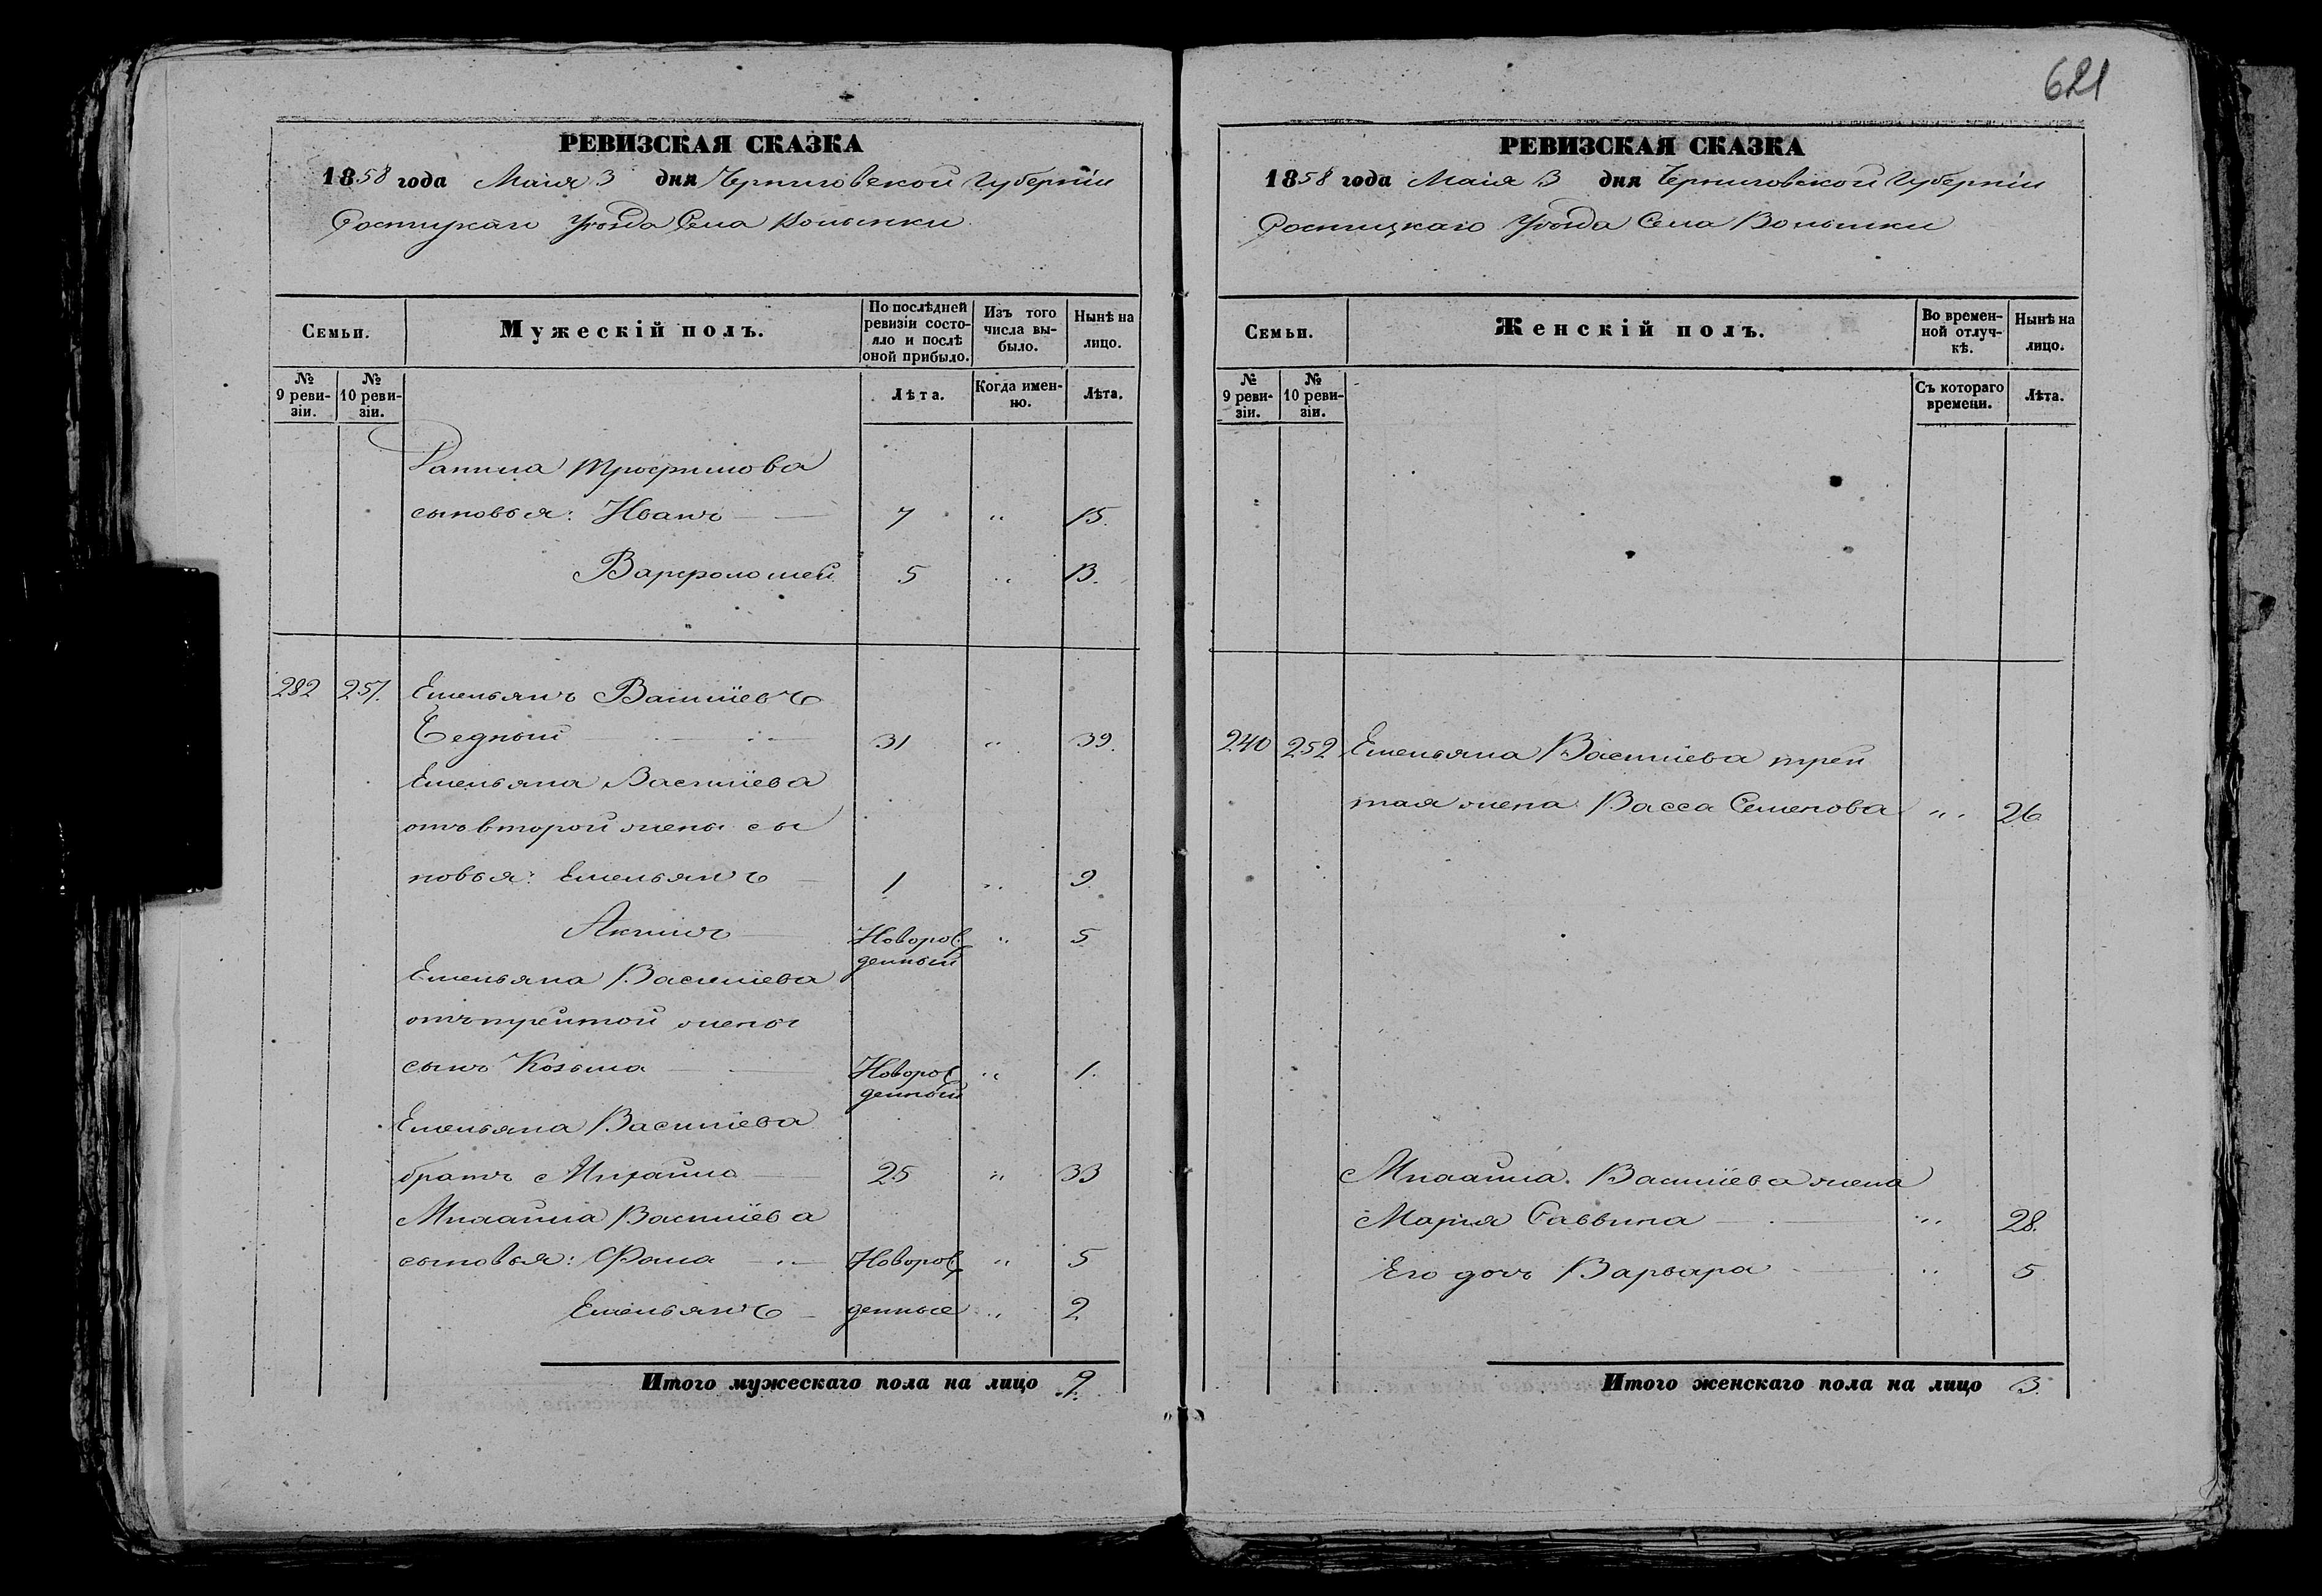 621
РЕВИЗСКАЯ СКАЗКА
1858 года Маія 3 дня Черниговской Губерніи
Сосницкаго Уѣзда Села Волынки
Семьи. Мужескій полъ. По послѣдней ревизіи состояло и послѣ оной прибыло. Изъ того числа выбыло. Нынѣ на лицо.
№ 9 ревизіи. № 10 ревизіи. Лѣта. Когда именно. Лѣта.
Данила Трофимова
сыновья: Иванъ 7 " 15.
Варфоломей 5 " 13.
282 257. Емельянъ Василіевъ
Бедный 31 " 39.
Емельяна Василіева
отъ второй жены сы
новья: Емельянъ 1 " 9.
Акимъ Новорож
денный " 5
Емельяна Василіева
отъ трейтой жены
сынъ Козьма Новорож
денный " 1.
Емельяна Василіева
братъ Михайла 25 " 33
Михайла Василіева
сыновья: Фома Новорож " 5
Емельянъ денные " 2
Итого мужескаго пола на лицо 9.
РЕВИЗСКАЯ СКАЗКА
1858 года Маія 3 дня Черниговской Губерніи
Сосницкаго Уѣзда Села Волынки
Семьи. Женскій полъ. Во временной отлучкѣ. Нынѣ на лицо.
№ 9 ревизіи. № 10 ревизіи. Съ котораго времени. Лѣта.
240 252 Емельяна Василіева трей
тая жена Васса Семенова " 26
Михайла Василіева жена
Марія Саввина " 28.
Его дочь Варвара " 5
Итого женскаго пола на лицо 3.